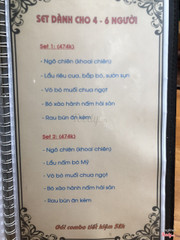 SET DÀNH CHO 4 - 6 NGƯỜI
Set 1: (474k)
- Ngô chiên (khoai chiên)
- Lẩu riêu cua, bắp bò, sườn sụn
- Vó bò muối chua ngọt
- Bò xào hành nấm hải sản
- Rau bún ăn kèm
Set 2: (474k)
- Ngô chiên (khoai chiên)
- Lẩu nấm bò Mỹ
- Vó bò muối chua ngọt
- Bò xào hành nấm hải sản
- Rau bún ăn kèm
Gói combo tiết kiệm 50k